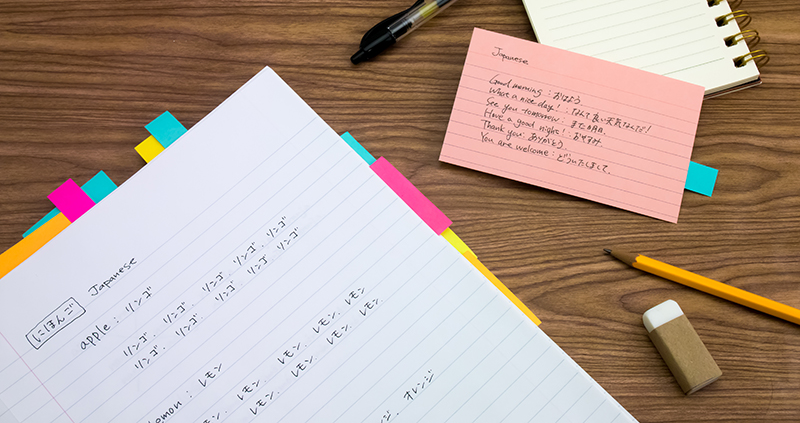 Japanese
Good morning : おはよう
What a nice day! : なんて良い天気
See you tomorrow : また明日.
Have a good night! : おやすみ.
Thank you : ありがとう.
You are welcome : どういたしまして.
にほんご Japanese
apple : リンゴ
リンゴ、リンゴ、リンゴ、リンゴ、リンゴ
リンゴ、リンゴ、リンゴ、リンゴ、リンゴ
emon : レモン
レモン、レモン、レモン、レモン
レモン、レモン、レモン、レモン
ジ、オレンジ